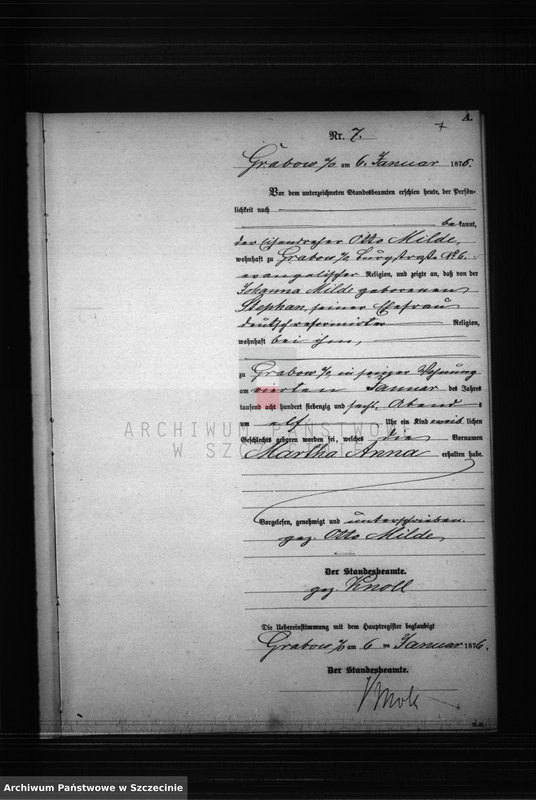 A.
Nr. 7.
7
Grabow a/O am 6. Januar 1876.
Vor dem unterzeichneten Standesbeamten erschien heute, der Persön-
lichkeit nach
bekannt,
der Eisendreher Otto Milde,
wohnhaft zu Grabow a/O Burgstraße No 6.
evangelischer Religion, und zeigte an, daß von der
Johanna Milde geborenen
Stephan, seiner Ehefrau
deutschreformirter Religion,
wohnhaft bei ihm,
zu Grabow a/O in seiner Wohnung
am vierten Januar des Jahres
tausend acht hundert siebenzig und sechs, Abends
um elf Uhr ein Kind weiblichen
Geschlechts geboren worden sei, welches die Vornamen
Martha Anna erhalten habe.
Vorgelesen, genehmigt und unterschrieben.
gez. Otto Milde,
Der Standesbeamte.
gez. Knoll
Die Uebereinstimmung mit dem Hauptregister beglaubigt
Grabow a/O am 6 ten Januar 1876.
Der Standesbeamte.
ARCHIWUM PAŃSTWOWE
W SZCZECINIE
Archiwum Państwowe w Szczecinie